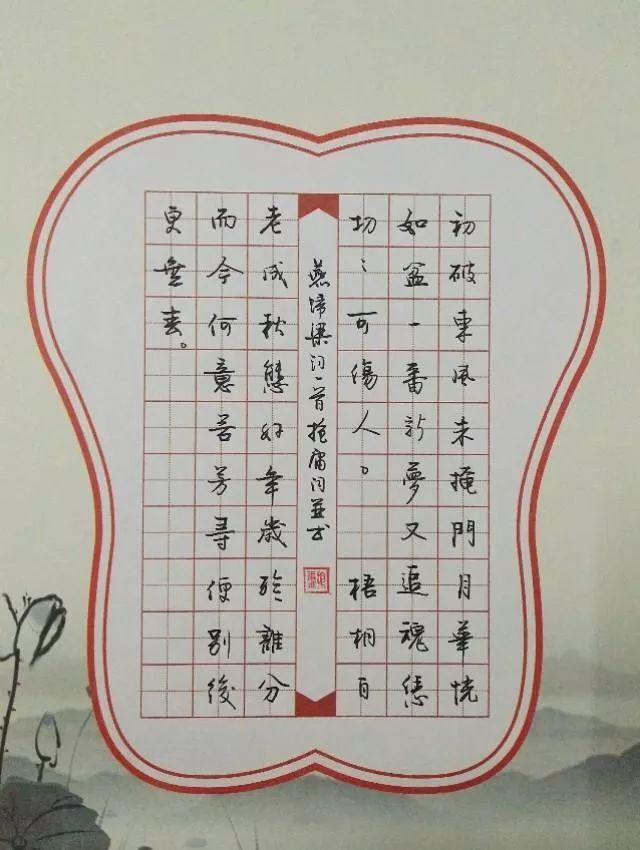 初破東風未掩門月華恍
如盆一番新夢又追魂
切〻可傷人。梧桐自
燕歸梁词一首
老成秋態好年歲離分
而今何意苦芳尋便別後
更無春。